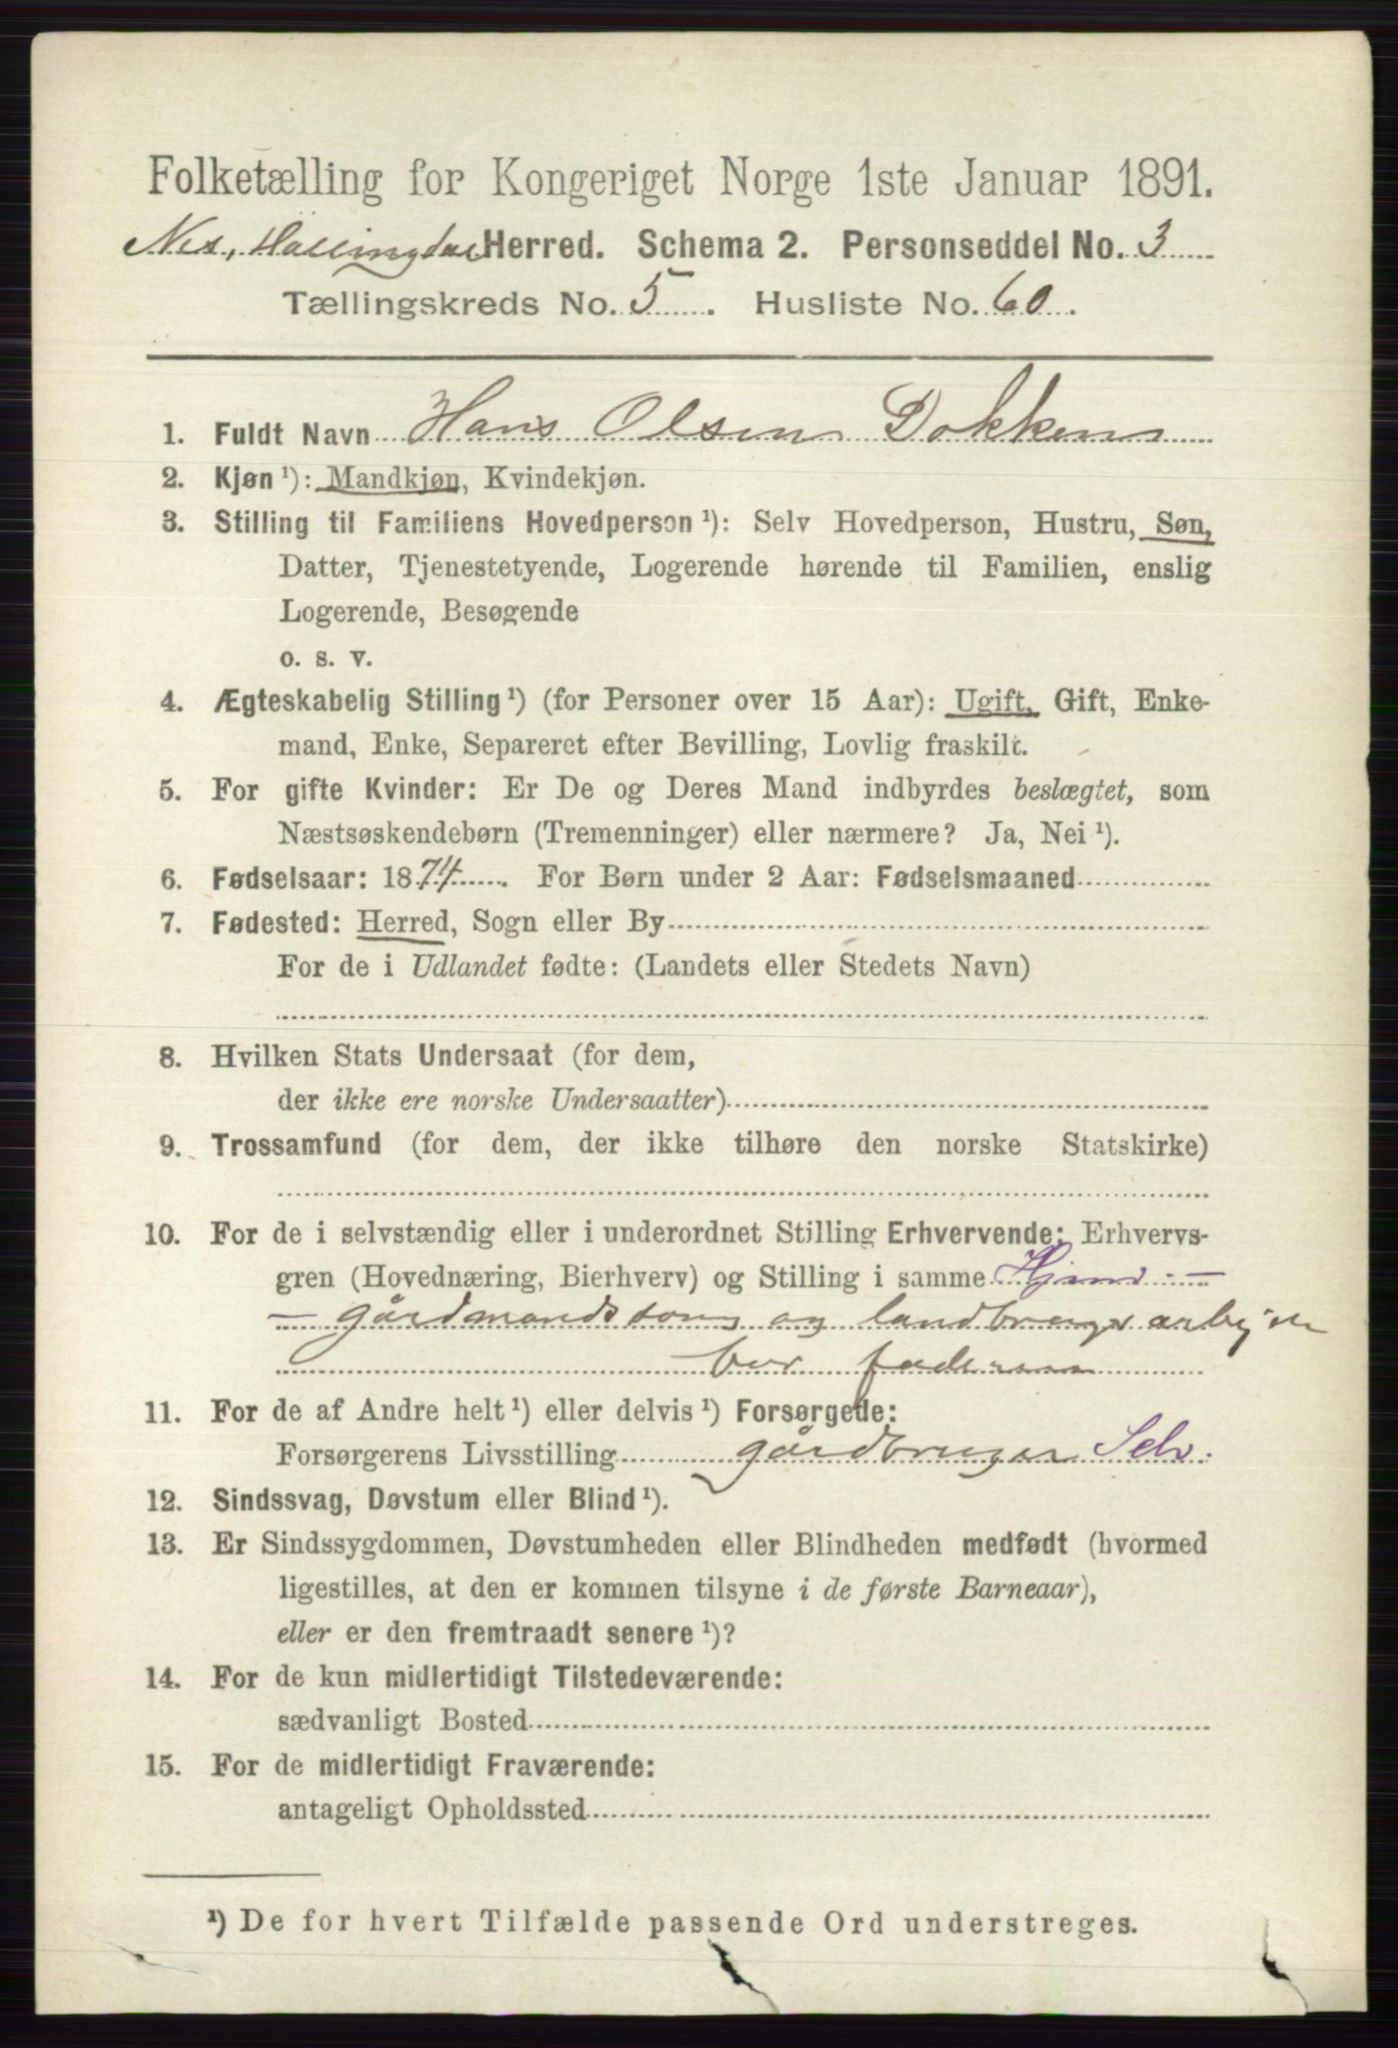 Folketælling for Kongeriget Norge 1ste Januar 1891.
Nes, Hallingdal Herred. Schema 2. Personseddel No. 3
Tællingskreds No. 5. Husliste No. 60.
1. Fuldt Navn Hans Olsen Dokken
2. Kjøn ¹): Mandkjøn, Kvindekjøn.
3. Stilling til Familiens Hovedperson ¹): Selv Hovedperson, Hustru, Søn,
Datter, Tjenestetyende, Logerende hørende til Familien, enslig
Logerende, Besøgende
o. s. v.
4. Ægteskabelig Stilling ¹) (for Personer over 15 Aar): Ugift, Gift, Enke-
mand, Enke, Separeret efter Bevilling, Lovlig fraskilt.
5. For gifte Kvinder: Er De og Deres Mand indbyrdes beslægtet, som
Næstsøskendebørn (Tremenninger) eller nærmere? Ja, Nei ¹).
6. Fødselsaar: 1874. For Børn under 2 Aar: Fødselsmaaned
7. Fødested: Herred, Sogn eller By
For de i Udlandet fødte: (Landets eller Stedets Navn)
8. Hvilken Stats Undersaat (for dem,
der ikke ere norske Undersaatter)
9. Trossamfund (for dem, der ikke tilhøre den norske Statskirke)
10. For de i selvstændig eller i underordnet Stilling Erhvervende: Erhvervs-
gren (Hovednæring, Bierhverv) og Stilling i samme
gårdmands søn og landbrugs
faderen
11. For de af Andre helt ¹) eller delvis ¹) Forsørgede:
Forsørgerens Livsstilling gårdbruger Selv.
12. Sindssvag, Døvstum eller Blind ¹).
13. Er Sindssygdommen, Døvstumheden eller Blindheden medfødt (hvormed
ligestilles, at den er kommen tilsyne i de første Barneaar),
eller er den fremtraadt senere ¹)?
14. For de kun midlertidigt Tilstedeværende:
sædvanligt Bosted
15. For de midlertidigt Fraværende:
antageligt Opholdssted
¹) De for hvert Tilfælde passende Ord understreges.